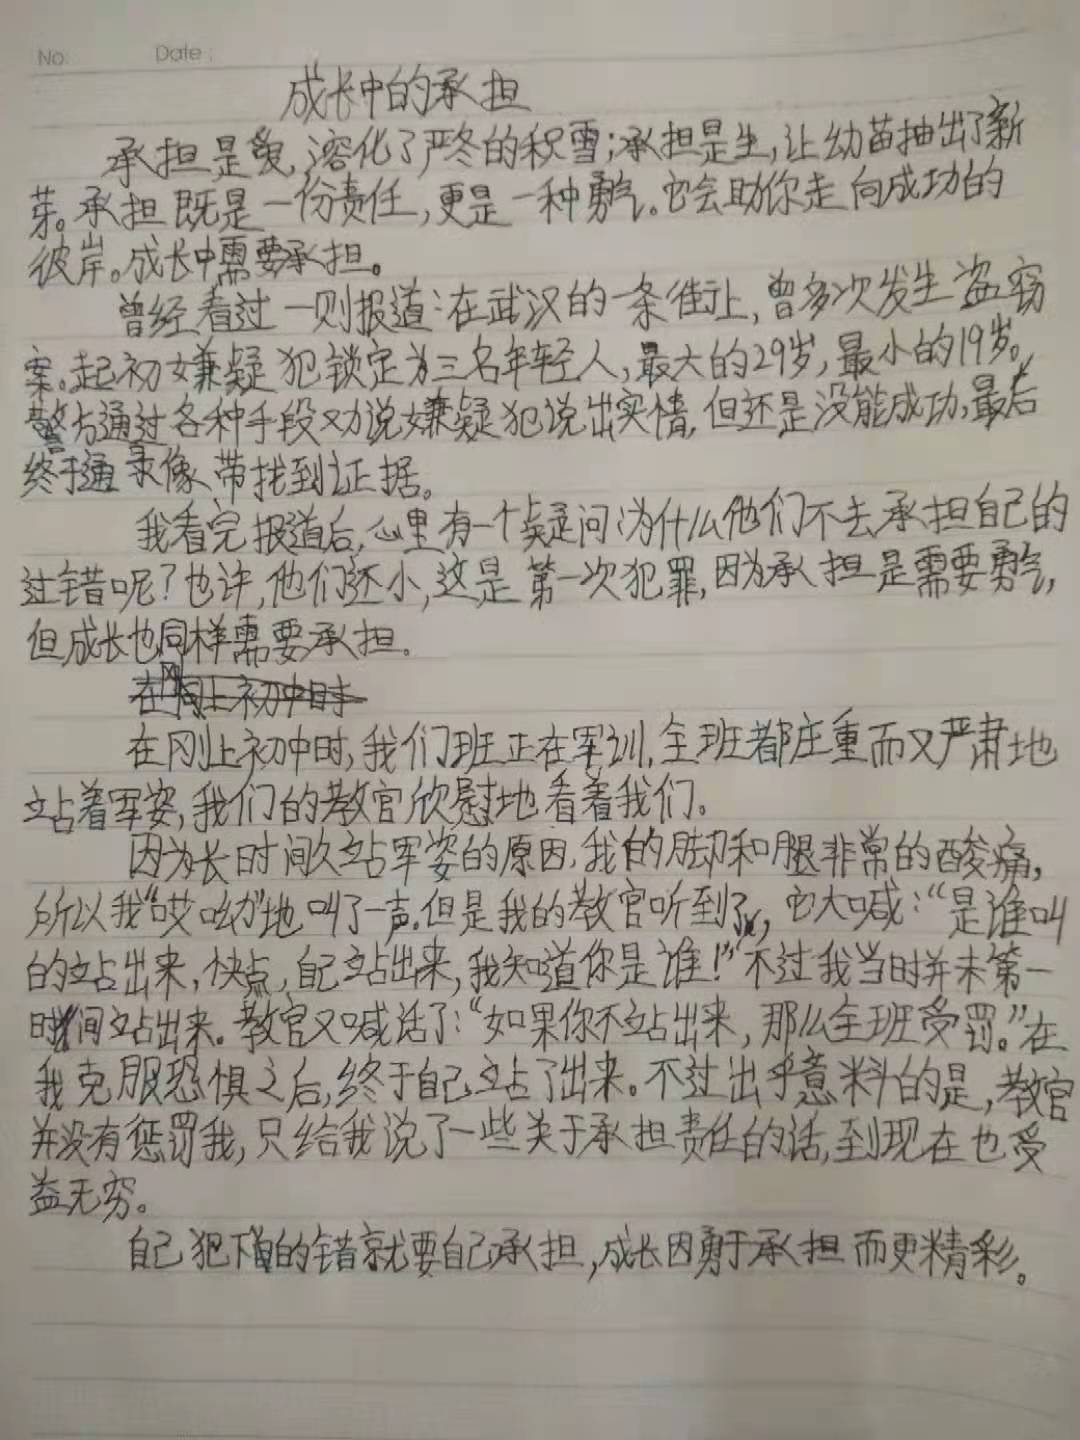 No.
Date:
成长中的承担
承担是爱，溶化了严冬的积雪；承担是生，让幼苗抽出了新
芽。承担既是一份责任，更是一种勇气。它会助你走向成功的
彼岸。成长中需要承担。
曾经看过一则报道：在武汉的一条街上，曾多次发生盗窃
案。起初嫌疑犯锁定为三名年轻人，最大的29岁，最小的19岁。
警方通过各种手段劝说嫌疑犯说出实情，但还是没能成功，最后
终于通录像带找到证据。
我看完报道后，心里有一个疑问：为什么他们不去承担自己的
过错呢？也许，他们还小，这是第一次犯罪，因为承担是需要勇气，
但成长也同样需要承担。
在刚上初中时
在刚上初中时，我们班正在军训，全班都庄重而又严肃地
站着军姿，我们的教官欣慰地看着我们。
因为长时间久站军姿的原因，我的脚和腿非常的酸痛，
所以我“哎呦”地叫了一声。但是我的教官听到了，它大喊：“是谁叫
的站出来，快点，自己站出来，我知道你是谁！”不过我当时并未第一
时间站出来。教官又喊话了：“如果你不站出来，那么全班受罚。”在
我克服恐惧之后，终于自己站了出来。不过出乎意料的是，教官
并没有惩罚我，只给我说了一些关于承担责任的话，到现在也受
益无穷。
自己犯下的错就要自己承担，成长因勇于承担而更精彩。